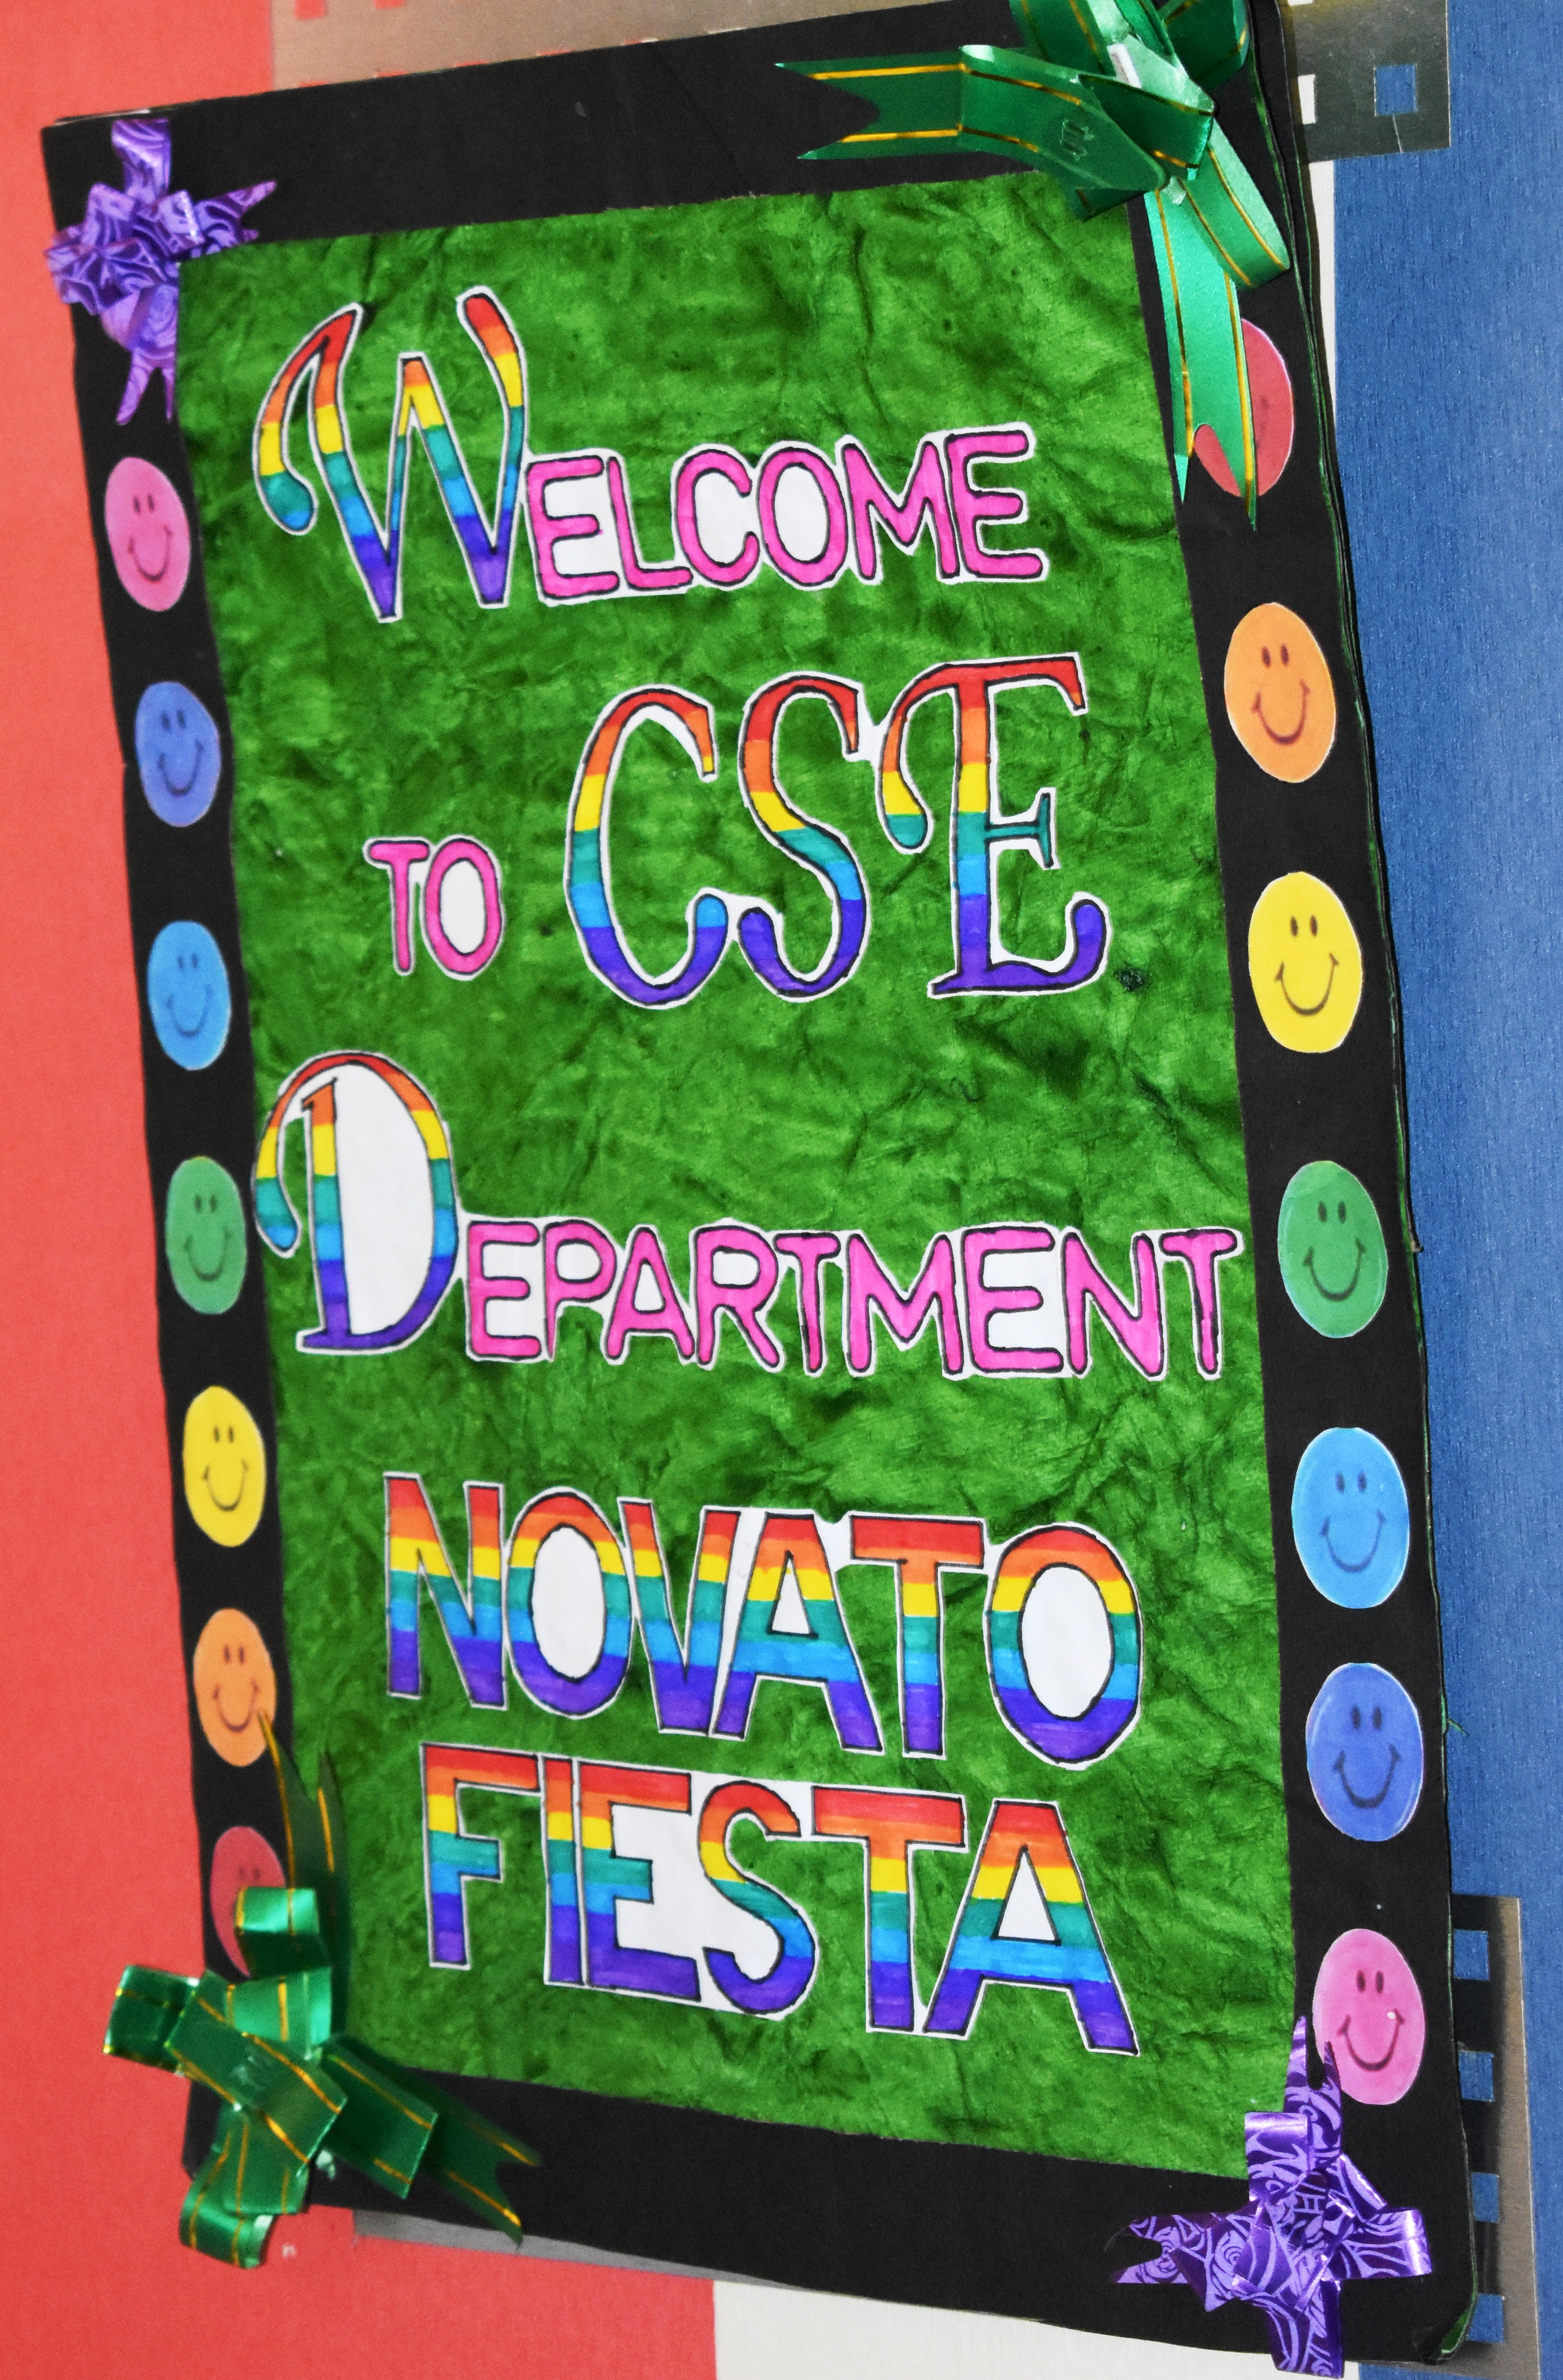 WELCOME
TO CSE
DEPARTMENT
NOVATO
FIESTA